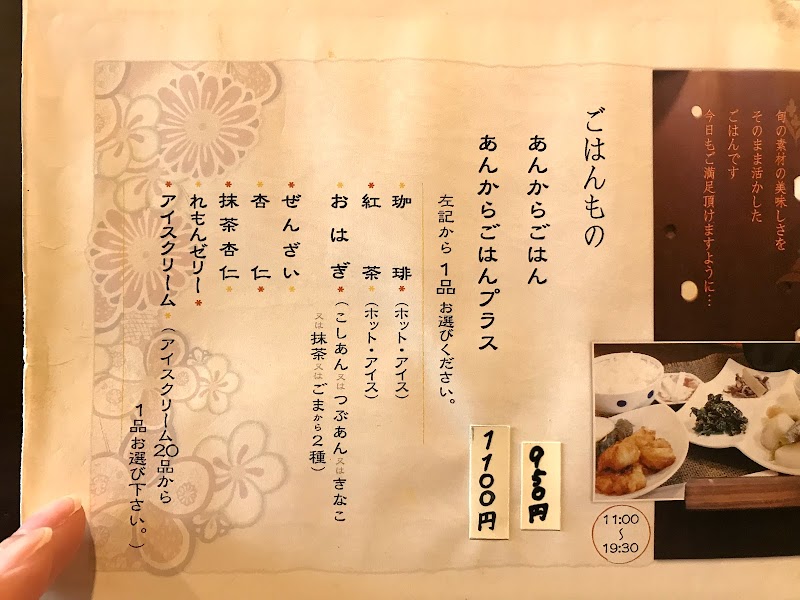 旬の素材の美味しさを
そのまま活かした
ごはんです
今日もご満足頂けますように…
11:00
〜
19:30
ごはんもの
あんからごはん
950円
あんからごはんプラス
1100円
左記から1品お選びください。
*珈琲*(ホット・アイス)
*紅茶*(ホット・アイス)
*おはぎ*(こしあん又はつぶあん又はきなこ
又は抹茶又はごまから2種)
*ぜんざい*
*杏仁*
*抹茶杏仁*
*れもんゼリー*
*アイスクリーム*(アイスクリーム20品から
1品お選び下さい。)